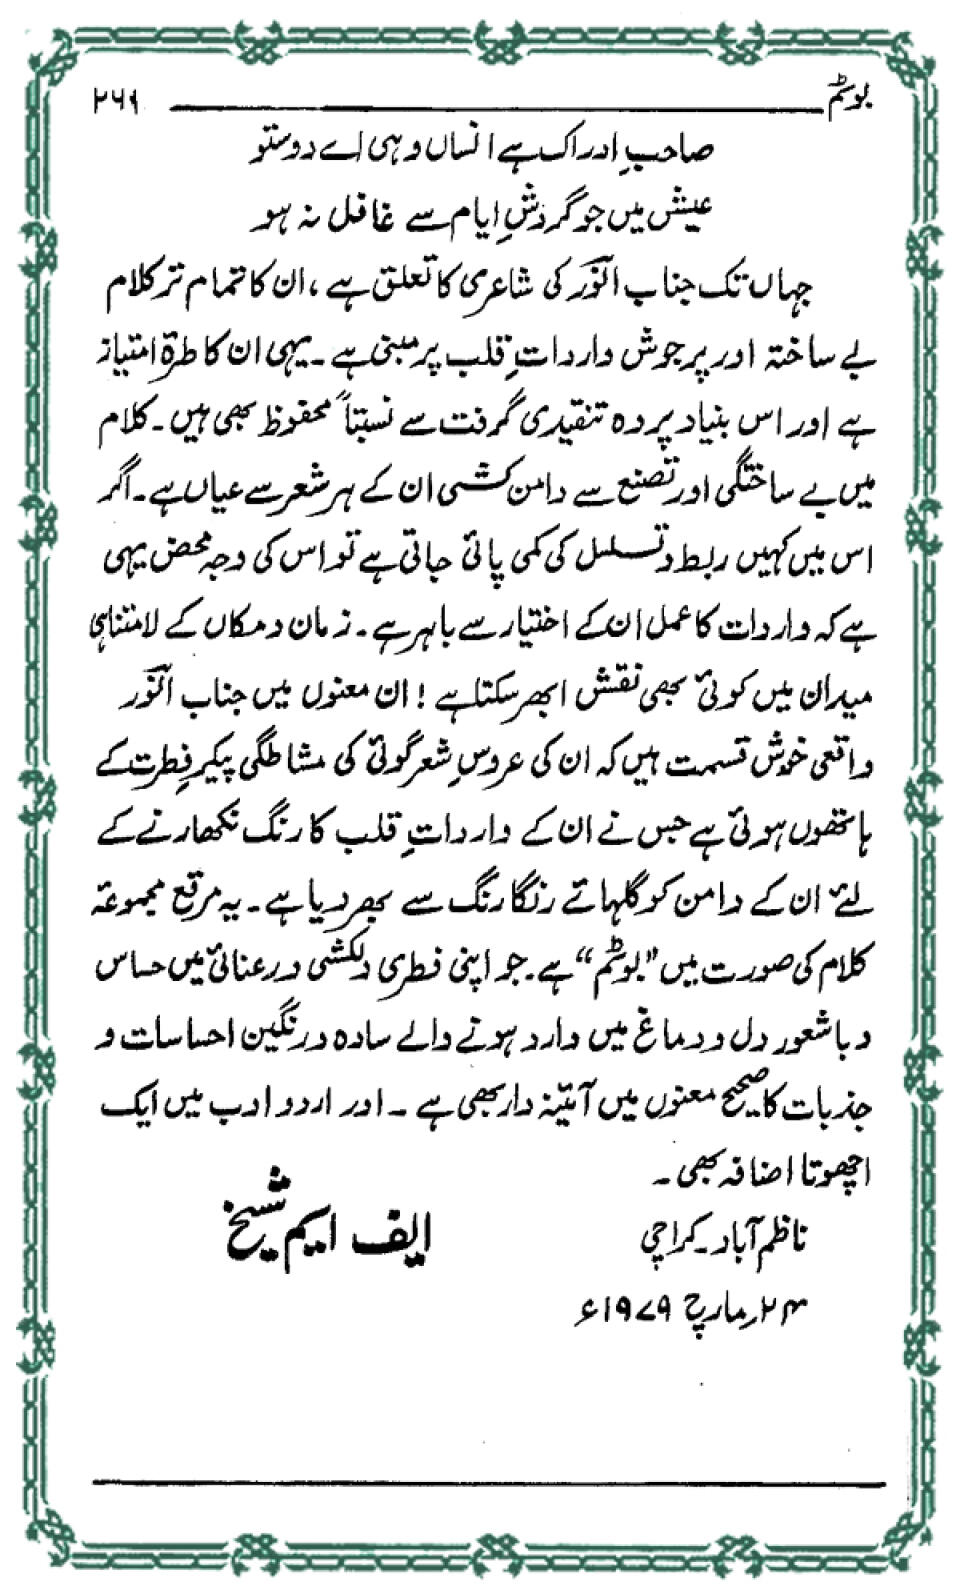 بوٹم ۲۶۹
صاحبِ ادراک ہے انساں وہی اے دوستو
عیش میں جو گردشِ ایام سے غافل نہ ہو
جہاں تک جناب انور کی شاعری کا تعلق ہے، ان کا تمام تر کلام
بے ساختہ اور پرجوش وارداتِ قلب پر مبنی ہے۔ یہی ان کا طرۂ امتیاز
ہے اور اس بنیاد پر وہ تنقیدی گرفت سے نسبتاً محفوظ بھی ہیں۔ کلام
میں بے ساختگی اور تصنع سے دامن کشی ان کے ہر شعر سے عیاں ہے۔ اگر
اس میں کہیں ربط و تسلسل کی کمی پائی جاتی ہے تو اس کی وجہ محض یہی
ہے کہ واردات کا عمل ان کے اختیار سے باہر ہے۔ زمان و مکاں کے لامتناہی
میدان میں کوئی بھی نقش ابھر سکتا ہے! ان معنوں میں جناب انور
واقعی خوش قسمت ہیں کہ ان کی عروسِ شعر گوئی کی مشاطگی پیکرِ فطرت کے
ہاتھوں ہوئی ہے جس نے ان کے وارداتِ قلب کا رنگ نکھارنے کے
لئے ان کے دامن کو گلہائے رنگا رنگ سے بھر دیا ہے۔ یہ مرقع مجموعۂ
کلام کی صورت میں "بوٹم" ہے۔ جو اپنی فطری دلکشی و رعنائی میں حساس
و باشعور دل و دماغ میں وارد ہونے والے سادہ و رنگین احساسات و
جذبات کا صحیح معنوں میں آئینہ دار بھی ہے۔ اور اردو ادب میں ایک
اچھوتا اضافہ بھی۔
ناظم آباد۔ کراچی ایف ایم شیخ
۲۴؍مارچ ۱۹۷۹ء